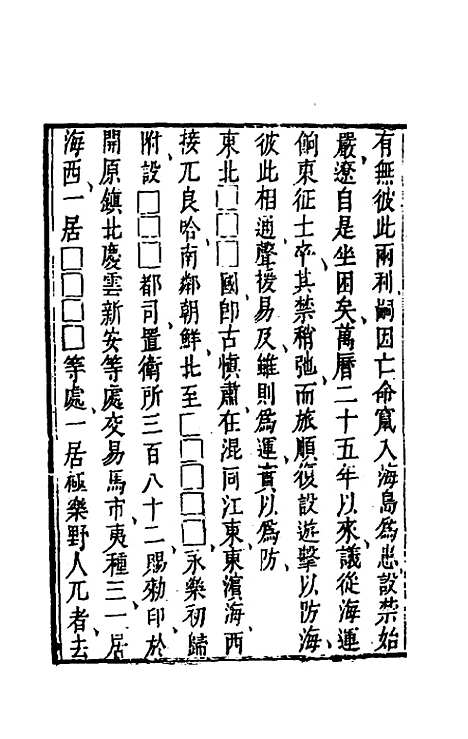 有無彼此兩利嗣因亡命竄入海島爲患設禁始
嚴遼自是坐困矣萬曆二十五年以來議從海運
餉東征士卒其禁稍弛而旅順復設遊擊以防海
彼此相通聲援易及雖則爲運實以爲防
東北□□□國即古慎肅在混同江東東濵海西
接兀良哈南鄰朝鮮北至□□□□永樂初歸
附設□□□都司置衛所三百八十二賜勑印於
開原鎮北慶雲新安等處交易馬市夷種三一居
海西一居□□□□等處一居極樂野人兀者去